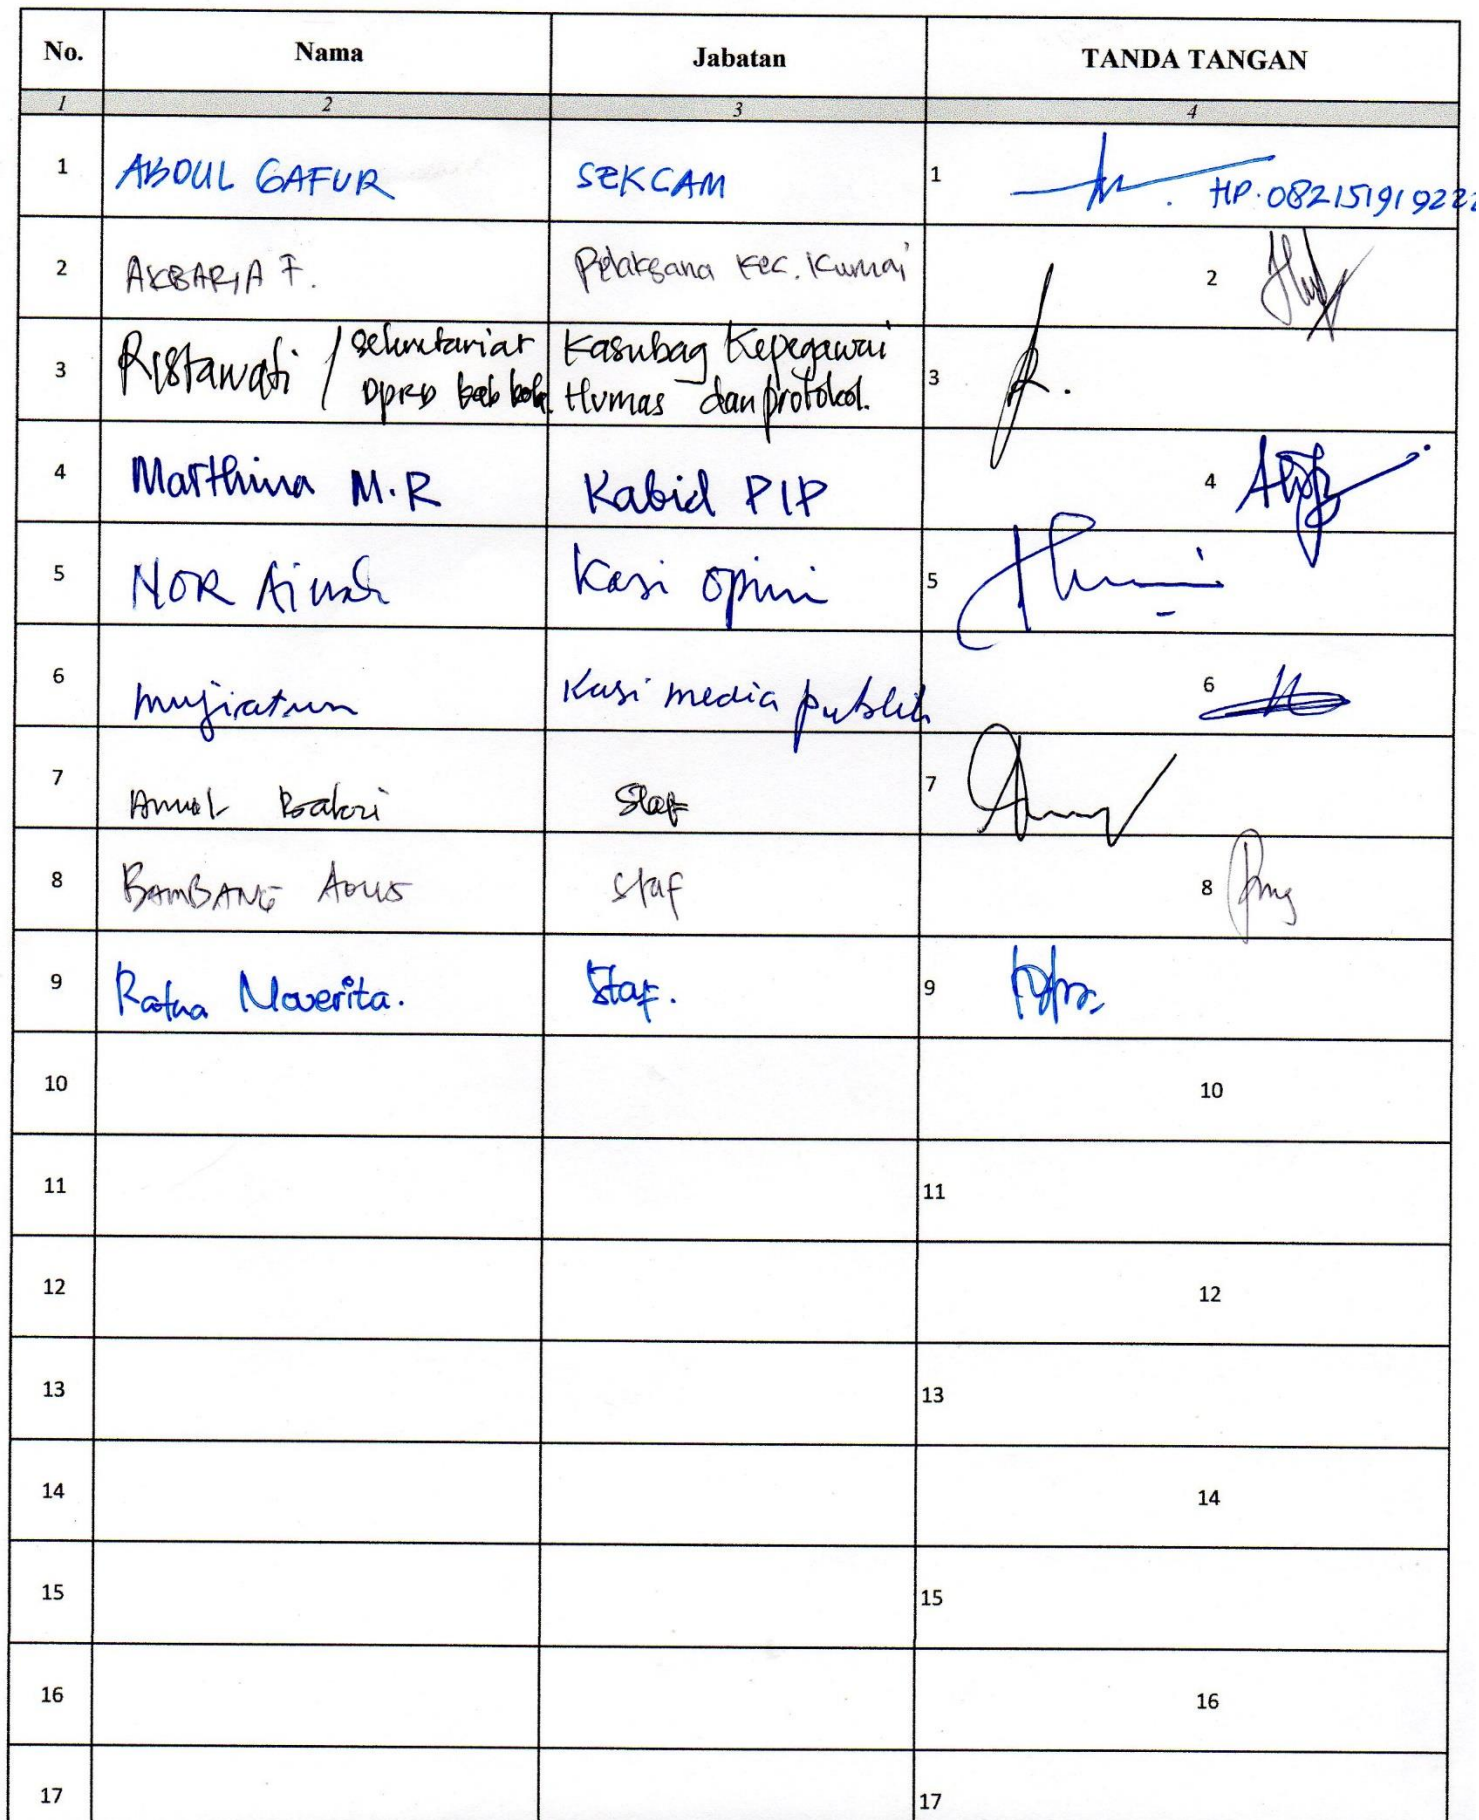 No. Nama Jabatan TANDA TANGAN
1 2 3 4
1 ABDUL GAFUR SEKCAM 1 HP. 082151919222
2 AKBARIA F. Pelaksana Kec. Kumai 2
3 Ristawati / sekretariat Kasubag Kepegawai 3
DPRD Humas dan protokol.
4 Marthina M.R Kabid PIP 4
5 NOR Ainah Kasi Opini 5
6 mujiatun Kasi media publik 6
7 Bakri Staf 7
8 BAMBANG AGUS Staf 8
9 Ratna Noverita. Staf. 9
10 10
11 11
12 12
13 13
14 14
15 15
16 16
17 17